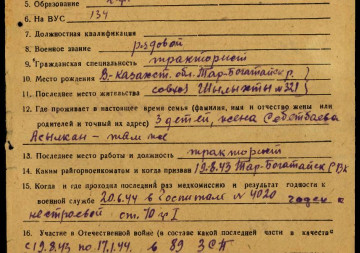 5. Образование
6. На ВУС 134
7. Должностная квалификация
8. Военное звание рядовой
9. Гражданская специальность тракторист
10. Место рождения В-Казахст. обл. Тар-Богатайск р.
11. Последнее место жительства совхоз Шиликты № 321
12. Где проживает в настоящее время семья (фамилия, имя и отчество жены или
родителей и точный их адрес) 3 детей, жена
Асылкан – там же
13. Последнее место работы и должность тракторист
14. Каким райгорвоенкоматом и когда призван 19.8.43 Тар-Богатайск РВК
15. Когда и где проходил последний раз медкомиссию и результат годности к
военной службе 20.6.44 в госпитале № 4020 годен к
нестроевой ст. 10 гр I
16. Участие в Отечественной войне (в составе какой последней части, в качестве
с 19.8.43 по 17.1.44 в 89 ЗСП